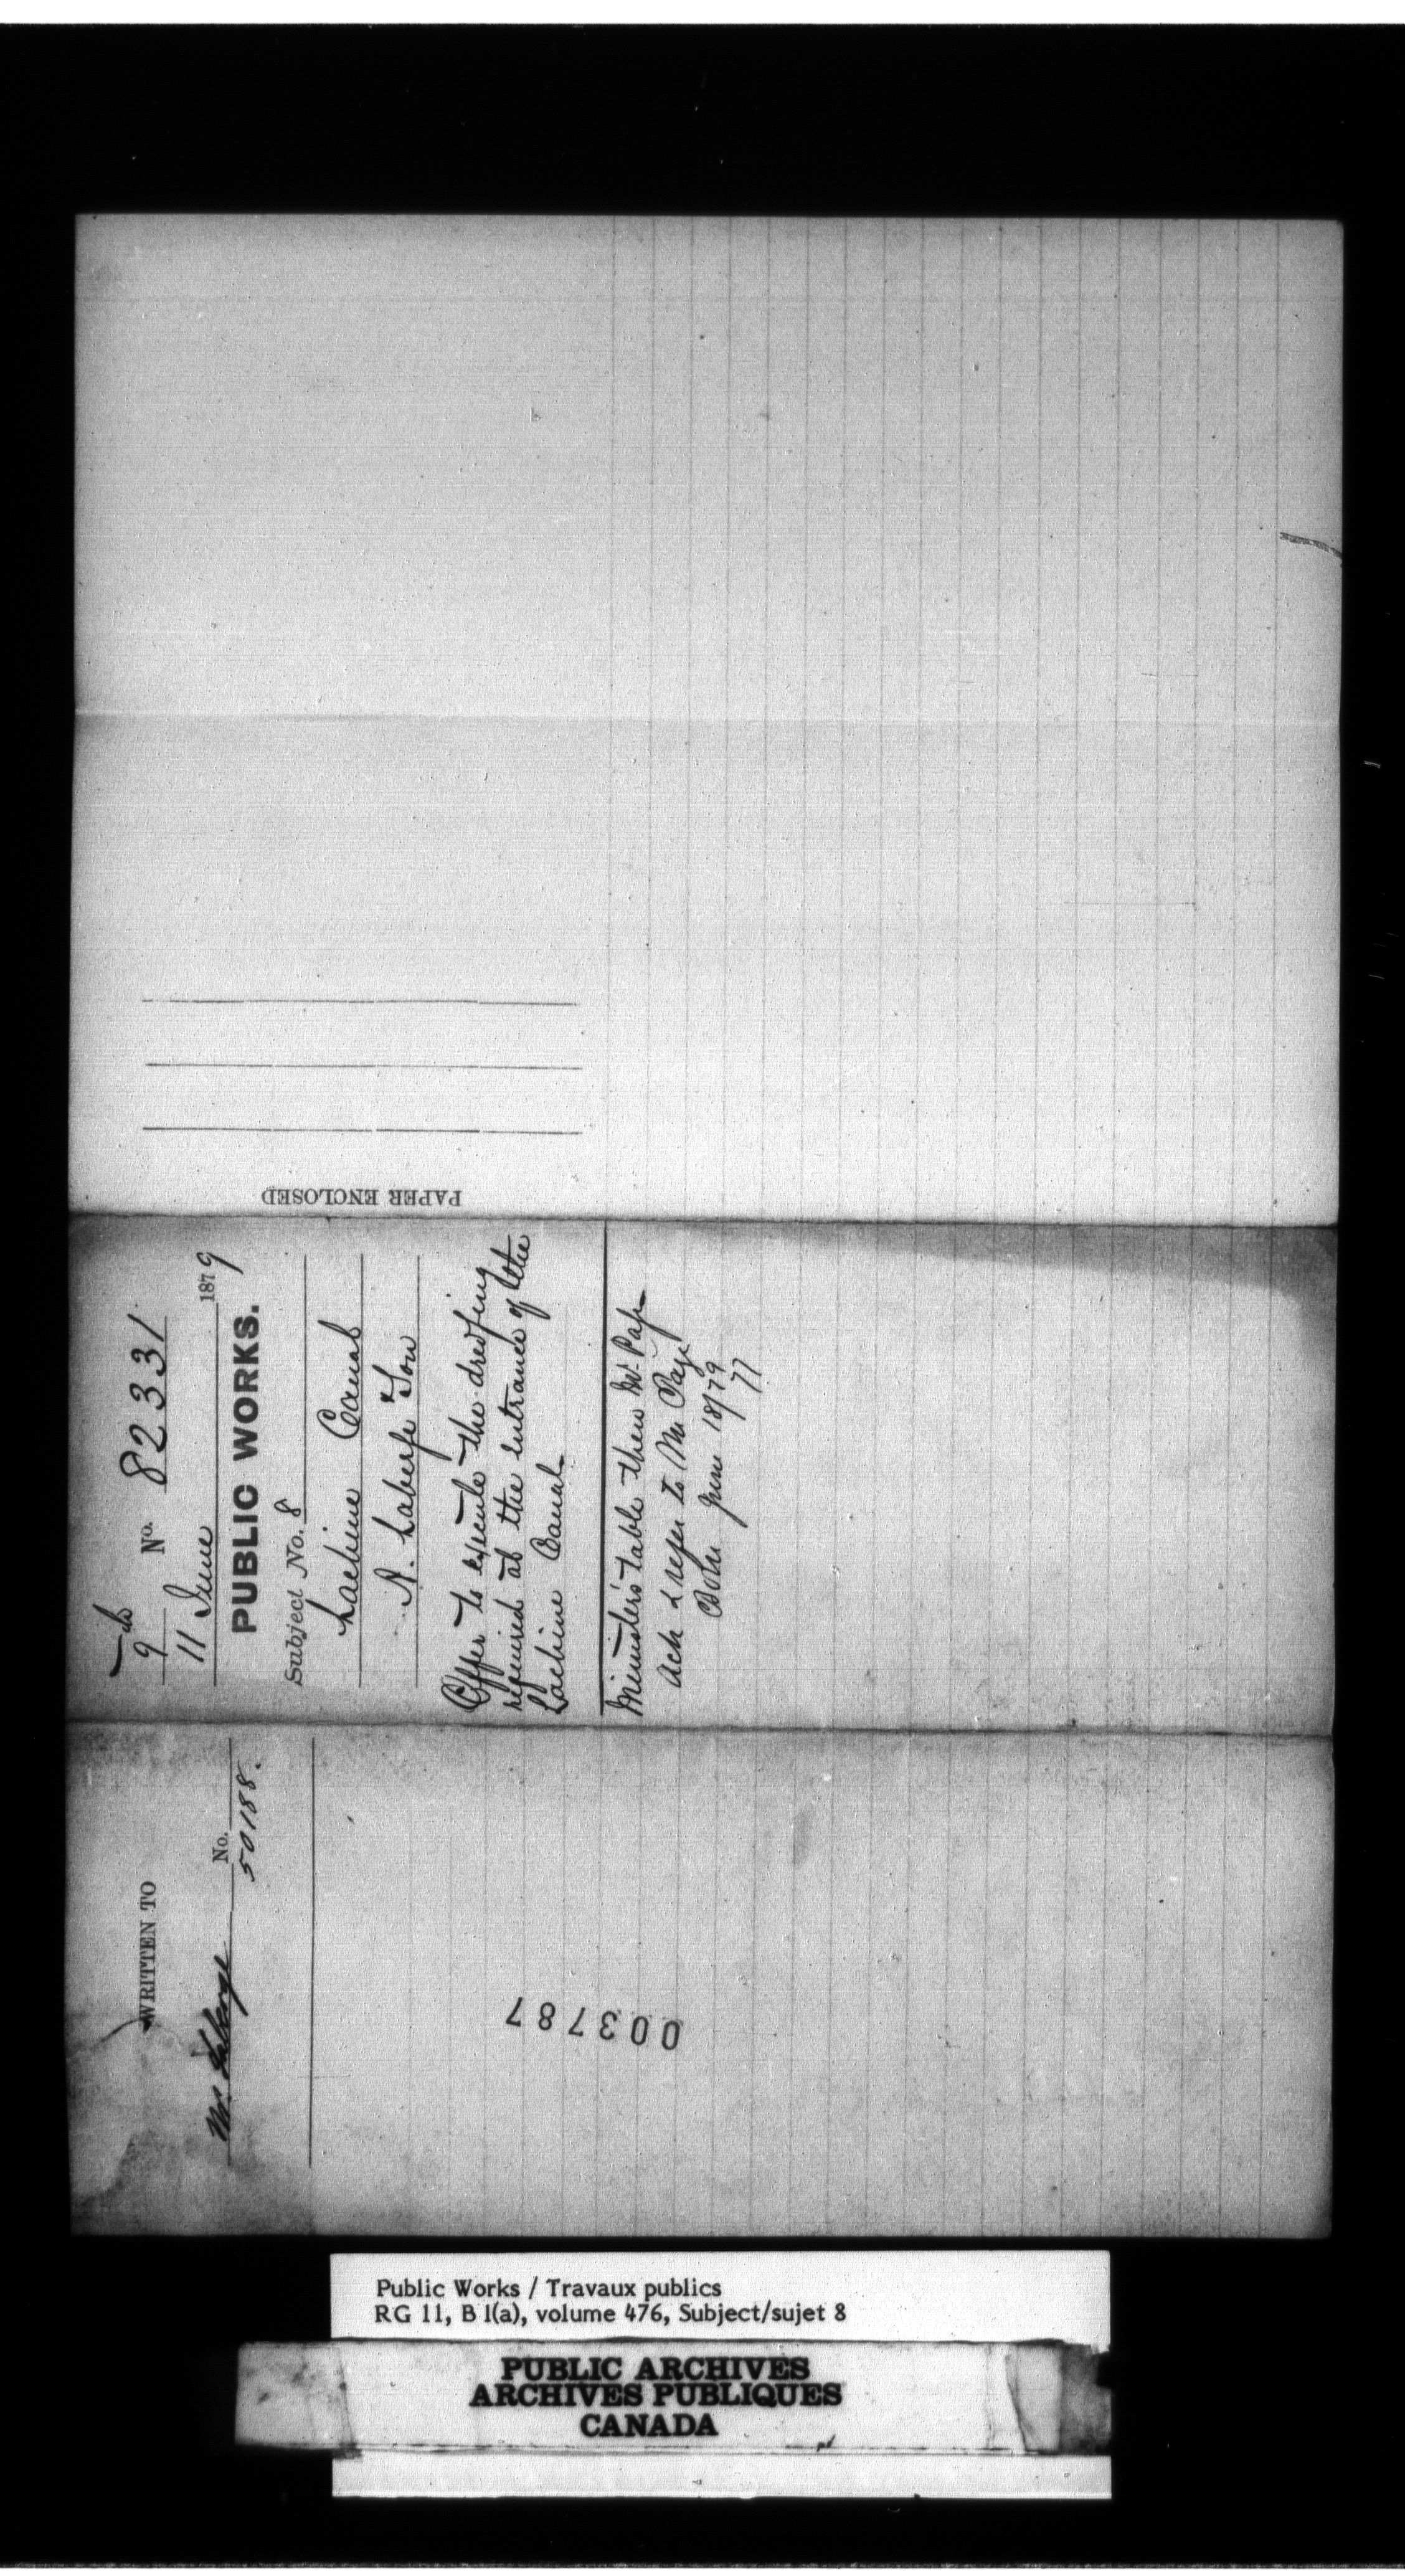 PAPER ENCLOSED
9 No. 82331
11 June 1879
PUBLIC WORKS.
Subject No. 8
Lachine Canal
A. Laberge & Son
Offer to execute the dredging
required at the entrance of the
Lachine Canal
Minister's table then Mr Page
Ack & refer to Mr Page
June 18/79
WRITTEN TO
Mr Laberge No.
50188.
003787
Public Works / Travaux publics
RG 11, B 1(a), volume 476, Subject/sujet 8
PUBLIC ARCHIVES
ARCHIVES PUBLIQUES
CANADA